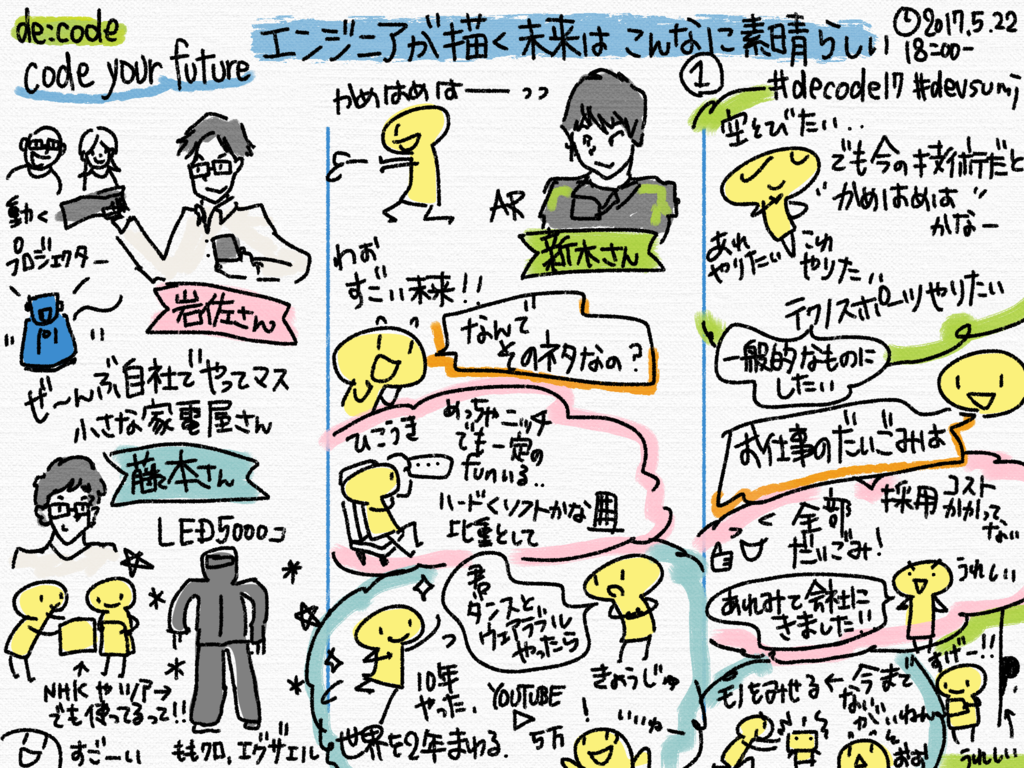 de:code
code your future
エンジニアが描く未来は こんなに素晴らしい
2017.5.22
18:00-
1
#decode17 #devsumi
動く
プロジェクター
岩佐さん
ぜ〜んぶ自社でやってマス
小さな家電屋さん
藤本さん
LED5000コ
NHKやツアー
でも使ってるって!!
すごーい
ももクロ,エグザイル
かめはめはーーっっ
AR
新木さん
わお
すごい未来!!
なんで
そのネタなの?
ひこうき
めっちゃニッチ
でも一定の
funいる..
ハードくソフトかな
比重として
君
ダンスと
ウェアラブル
やったら
きょうじゅ
10年
やった.
YOUTUBE
5万!
いいカー
世界を2年まわる.
空とびたい..
でも今の技術だと
"かめはめは"
かなー
あれ
やりたい
これ
やりたい
テクノスポーツやりたい
一般的なものに
したい
お仕事のだいごみは
全部
だいごみ!
採用コスト
かかって
ない
あれみて会社に
きました!!
うれしい
すげー!!
モノをみせる←今まで
ない
がいねん
おお
うれしい